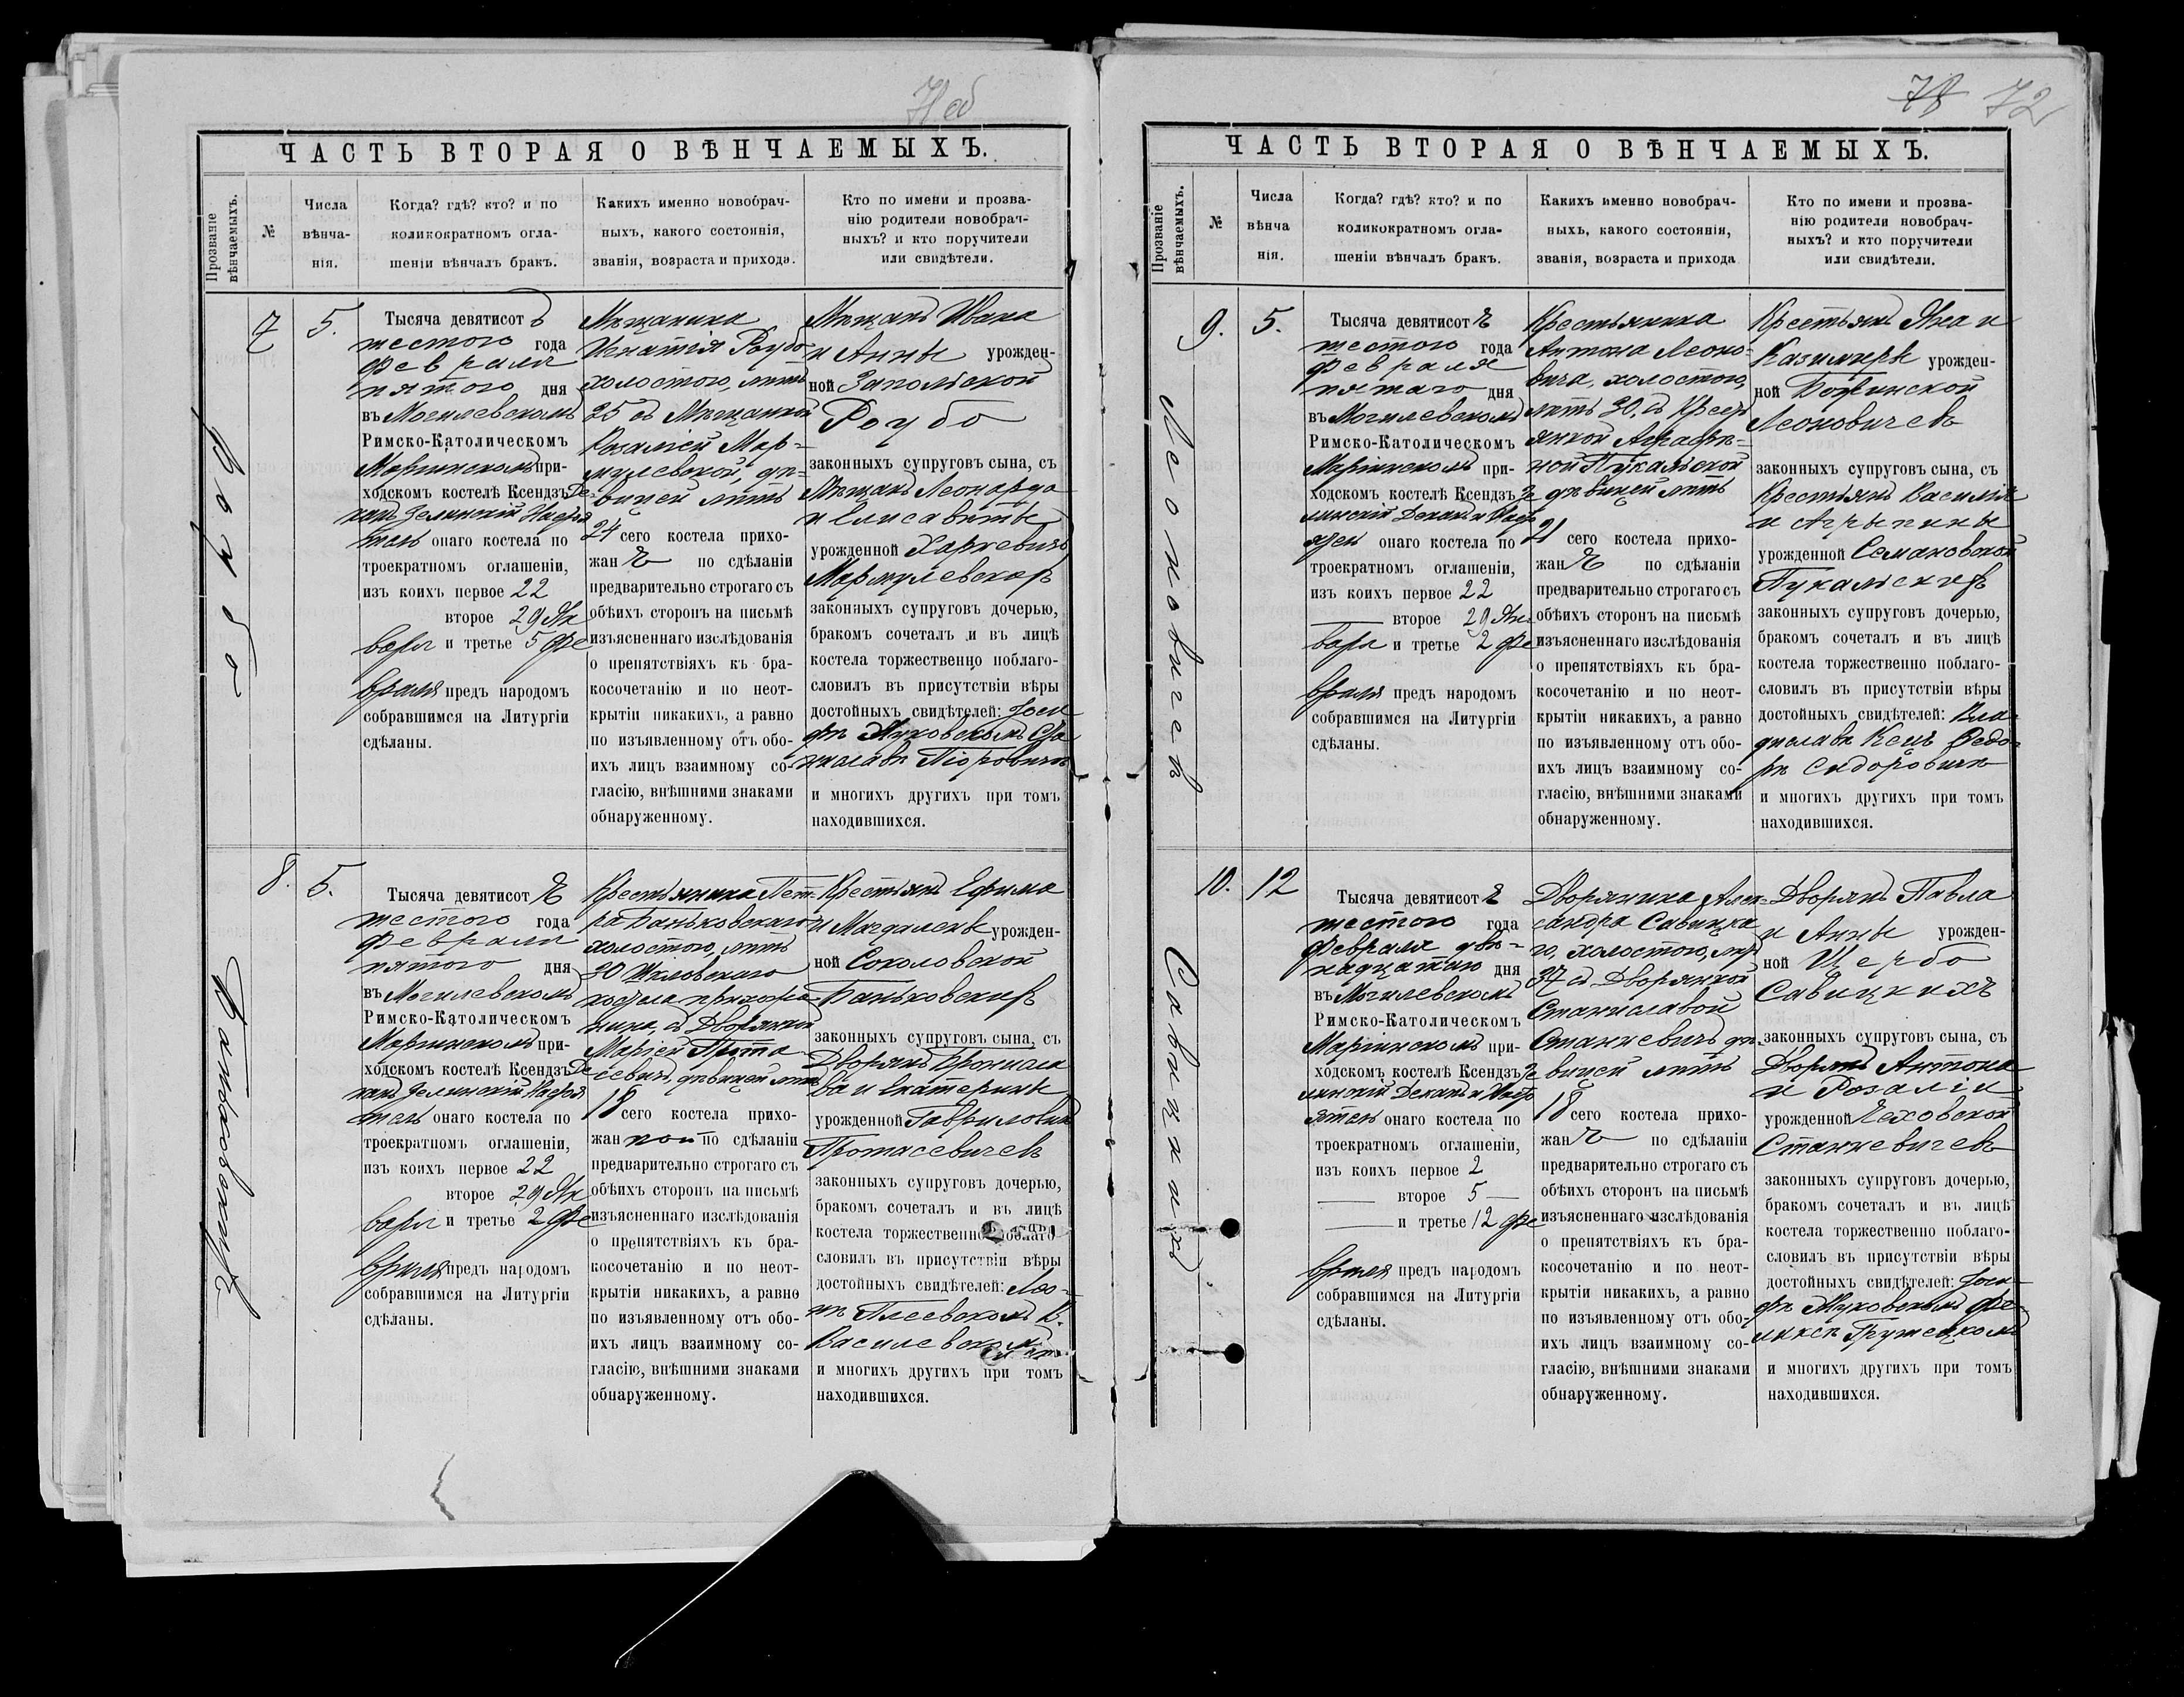 ЧАСТЬ ВТОРАЯ О ВѢНЧАЕМЫХЪ.
Прозваніе вѣнчаемыхъ.
№
Числа вѣнча-
нія.
Когда? гдѣ? кто? и по
коликократномъ огла-
шеніи вѣнчалъ бракъ.
Какихъ именно новобрач-
ныхъ, какого состоянія,
званія, возраста и прихода.
Кто по имени и прозва-
нію родители новобрач-
ныхъ? и кто поручители
или свидѣтели.
Роубо
7
5.
Тысяча девятисотъ
шестого года
февраля
пятого дня
въ Могилевскомъ
Римско-Католическомъ
Маріинскомъ при-
ходскомъ костелѣ Ксендзъ Де-
канъ Зелинскій Настоя
тель онаго костела по
троекратномъ оглашеніи,
изъ коихъ первое 22
второе 29 Ян
варя и третье 5 фе
враля предъ народомъ
собравшимся на Литургіи
сдѣланы.
Мѣщанина
Игнатія Роубо
холостого, лѣтъ
25 съ Мѣщанкой
Розаліей Мар-
мулевской, дѣ-
вицей лѣтъ
24 сего костела прихо-
жанъ по сдѣланіи
предварительно строгаго съ
обѣихъ сторонъ на письмѣ
изъясненнаго изслѣдованія
о препятствіяхъ къ бра-
косочетанію и по неот-
крытіи никакихъ, а равно
по изъявленному отъ обо-
ихъ лицъ взаимному со-
гласію, внѣшними знаками
обнаруженному.
Мѣщанъ Ивана
и Анны урожден-
ной Запольской
Роубо
законныхъ супруговъ сына, съ
Мѣщанъ Леонарда
и Елисаветы
урожденной Харкевичъ
Мармулевскихъ
законныхъ супруговъ дочерью,
бракомъ сочеталъ и въ лицѣ
костела торжественно поблаго-
словилъ въ присутствіи вѣры
достойныхъ свидѣтелей: Іоси-
фѣ Жуковскомъ Ста
ниславѣ Піоровичѣ
и многихъ другихъ при томъ
находившихся.
Баньковскихъ
8.
5.
Тысяча девятисотъ
шестого года
февраля
пятого дня
въ Могилевскомъ
Римско-Католическомъ
Маріинскомъ при-
ходскомъ костелѣ Ксендзъ Де
канъ Зелинскій Настоя
тель онаго костела по
троекратномъ оглашеніи,
изъ коихъ первое 22
второе 29 Ян
варя и третье 2 фе
враля предъ народомъ
собравшимся на Литургіи
сдѣланы.
Крестьянина Пет-
ра Баньковскаго
холостого, лѣтъ
30 Шкловскаго
костела прихожа-
нина, съ Дворянкой
Маріей Прота-
севичъ, дѣвицей лѣтъ
18 сего костела прихо-
жанкой по сдѣланіи
предварительно строгаго съ
обѣихъ сторонъ на письмѣ
изъясненнаго изслѣдованія
о препятствіяхъ къ бра-
косочетанію и по неот-
крытіи никакихъ, а равно
по изъявленному отъ обо-
ихъ лицъ взаимному со-
гласію, внѣшними знаками
обнаруженному.
Крестьянъ Ефима
и Магдалены урожден-
ной Соколовской
Баньковскихъ
законныхъ супруговъ сына, съ
Дворянъ Бронисла
ва и Екатерины
урожденной Гавриловичъ
Протасевичевъ
законныхъ супруговъ дочерью,
бракомъ сочеталъ и въ лицѣ
костела торжественно поблаго-
словилъ въ присутствіи вѣры
достойныхъ свидѣтелей:
Василевскомъ
и многихъ другихъ при томъ
находившихся.
72
ЧАСТЬ ВТОРАЯ О ВѢНЧАЕМЫХЪ.
Прозваніе вѣнчаемыхъ.
№
Числа
вѣнча
нія.
Когда? гдѣ? кто? и по
коликократномъ огла-
шеніи вѣнчалъ бракъ.
Какихъ именно новобрач-
ныхъ, какого состоянія,
званія, возраста и прихода
Кто по имени и прозва-
нію родители новобрач-
ныхъ? и кто поручители
или свидѣтели.
Леоновичевъ
9.
5.
Тысяча девятисотъ
шестого года
февраля
пятаго дня
въ Могилевскомъ
Римско-Католическомъ
Маріинскомъ при-
ходскомъ костелѣ Ксендзъ Зе
линскій Деканъ и Наст
ятель онаго костела по
троекратномъ оглашеніи,
изъ коихъ первое 22
второе 29 Ян
варя и третье 2 фе
враля предъ народомъ
собравшимся на Литургіи
сдѣланы.
Крестьянина
Антона Леоно-
вича, холостого,
лѣтъ 30, съ Крест
янкой Аграфе-
ной Пукальской
дѣвицей лѣтъ
21 сего костела прихо-
жанъ по сдѣланіи
предварительно строгаго съ
обѣихъ сторонъ на письмѣ
изъясненнаго изслѣдованія
о препятствіяхъ къ бра-
косочетанію и по неот-
крытіи никакихъ, а равно
по изъявленному отъ обо-
ихъ лицъ взаимному со-
гласію, внѣшними знаками
обнаруженному.
Крестьянъ Яна и
Казимиры урожден-
ной
Леоновичевъ
законныхъ супруговъ сына, съ
Крестьянъ Василія
и Агрыпины
урожденной Семановской
Пукальскихъ
законныхъ супруговъ дочерью,
бракомъ сочеталъ и въ лицѣ
костела торжественно поблаго-
словилъ въ присутствіи вѣры
достойныхъ свидѣтелей: Вла-
диславѣ Кецъ Федо-
рѣ Сидоровичѣ
и многихъ другихъ при томъ
находившихся.
Савицкихъ
10.
12
Тысяча девятисотъ
шестого года
Февраля двѣ-
надцатаго дня
въ Могилевскомъ
Римско-Католическомъ
Маріинскомъ при-
ходскомъ костелѣ Ксендзъ Зе
линскій Деканъ и Насто
ятель онаго костела по
троекратномъ оглашеніи,
изъ коихъ первое 2
второе 5
и третье 12 фе
враля предъ народомъ
собравшимся на Литургіи
сдѣланы.
Дворянина Алек-
сандра Савицка
го, холостого, лѣтъ
37 съ Дворянкой
Станиславой
Станкевичъ дѣ-
вицей лѣтъ
18 сего костела прихо-
жанъ по сдѣланіи
предварительно строгаго съ
обѣихъ сторонъ на письмѣ
изъясненнаго изслѣдованія
о препятствіяхъ къ бра-
косочетанію и по неот-
крытіи никакихъ, а равно
по изъявленному отъ обо-
ихъ лицъ взаимному со-
гласію, внѣшними знаками
обнаруженному.
Дворянъ Павла
и Анны урожден-
ной Щербо
Савицкихъ
законныхъ супруговъ сына, съ
Дворянъ Антона
и Розаліи
урожденной Чеховской
Станкевичевъ
законныхъ супруговъ дочерью,
бракомъ сочеталъ и въ лицѣ
костела торжественно поблаго-
словилъ въ присутствіи вѣры
достойныхъ свидѣтелей: Іоси-
фѣ Жуковскомъ Фе-
ликсѣ Гружецкомъ
и многихъ другихъ при томъ
находившихся.